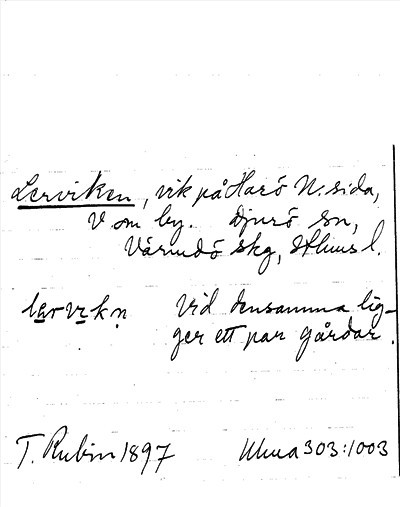 Lerviken, vik på Harö N. sida,
V om by. Djurö sn,
Värmdö skg, Sthlms l.
lervikn Vid densamma lig-
ger ett par gårdar.
T. Rubin 1897 Ulma 303:1003